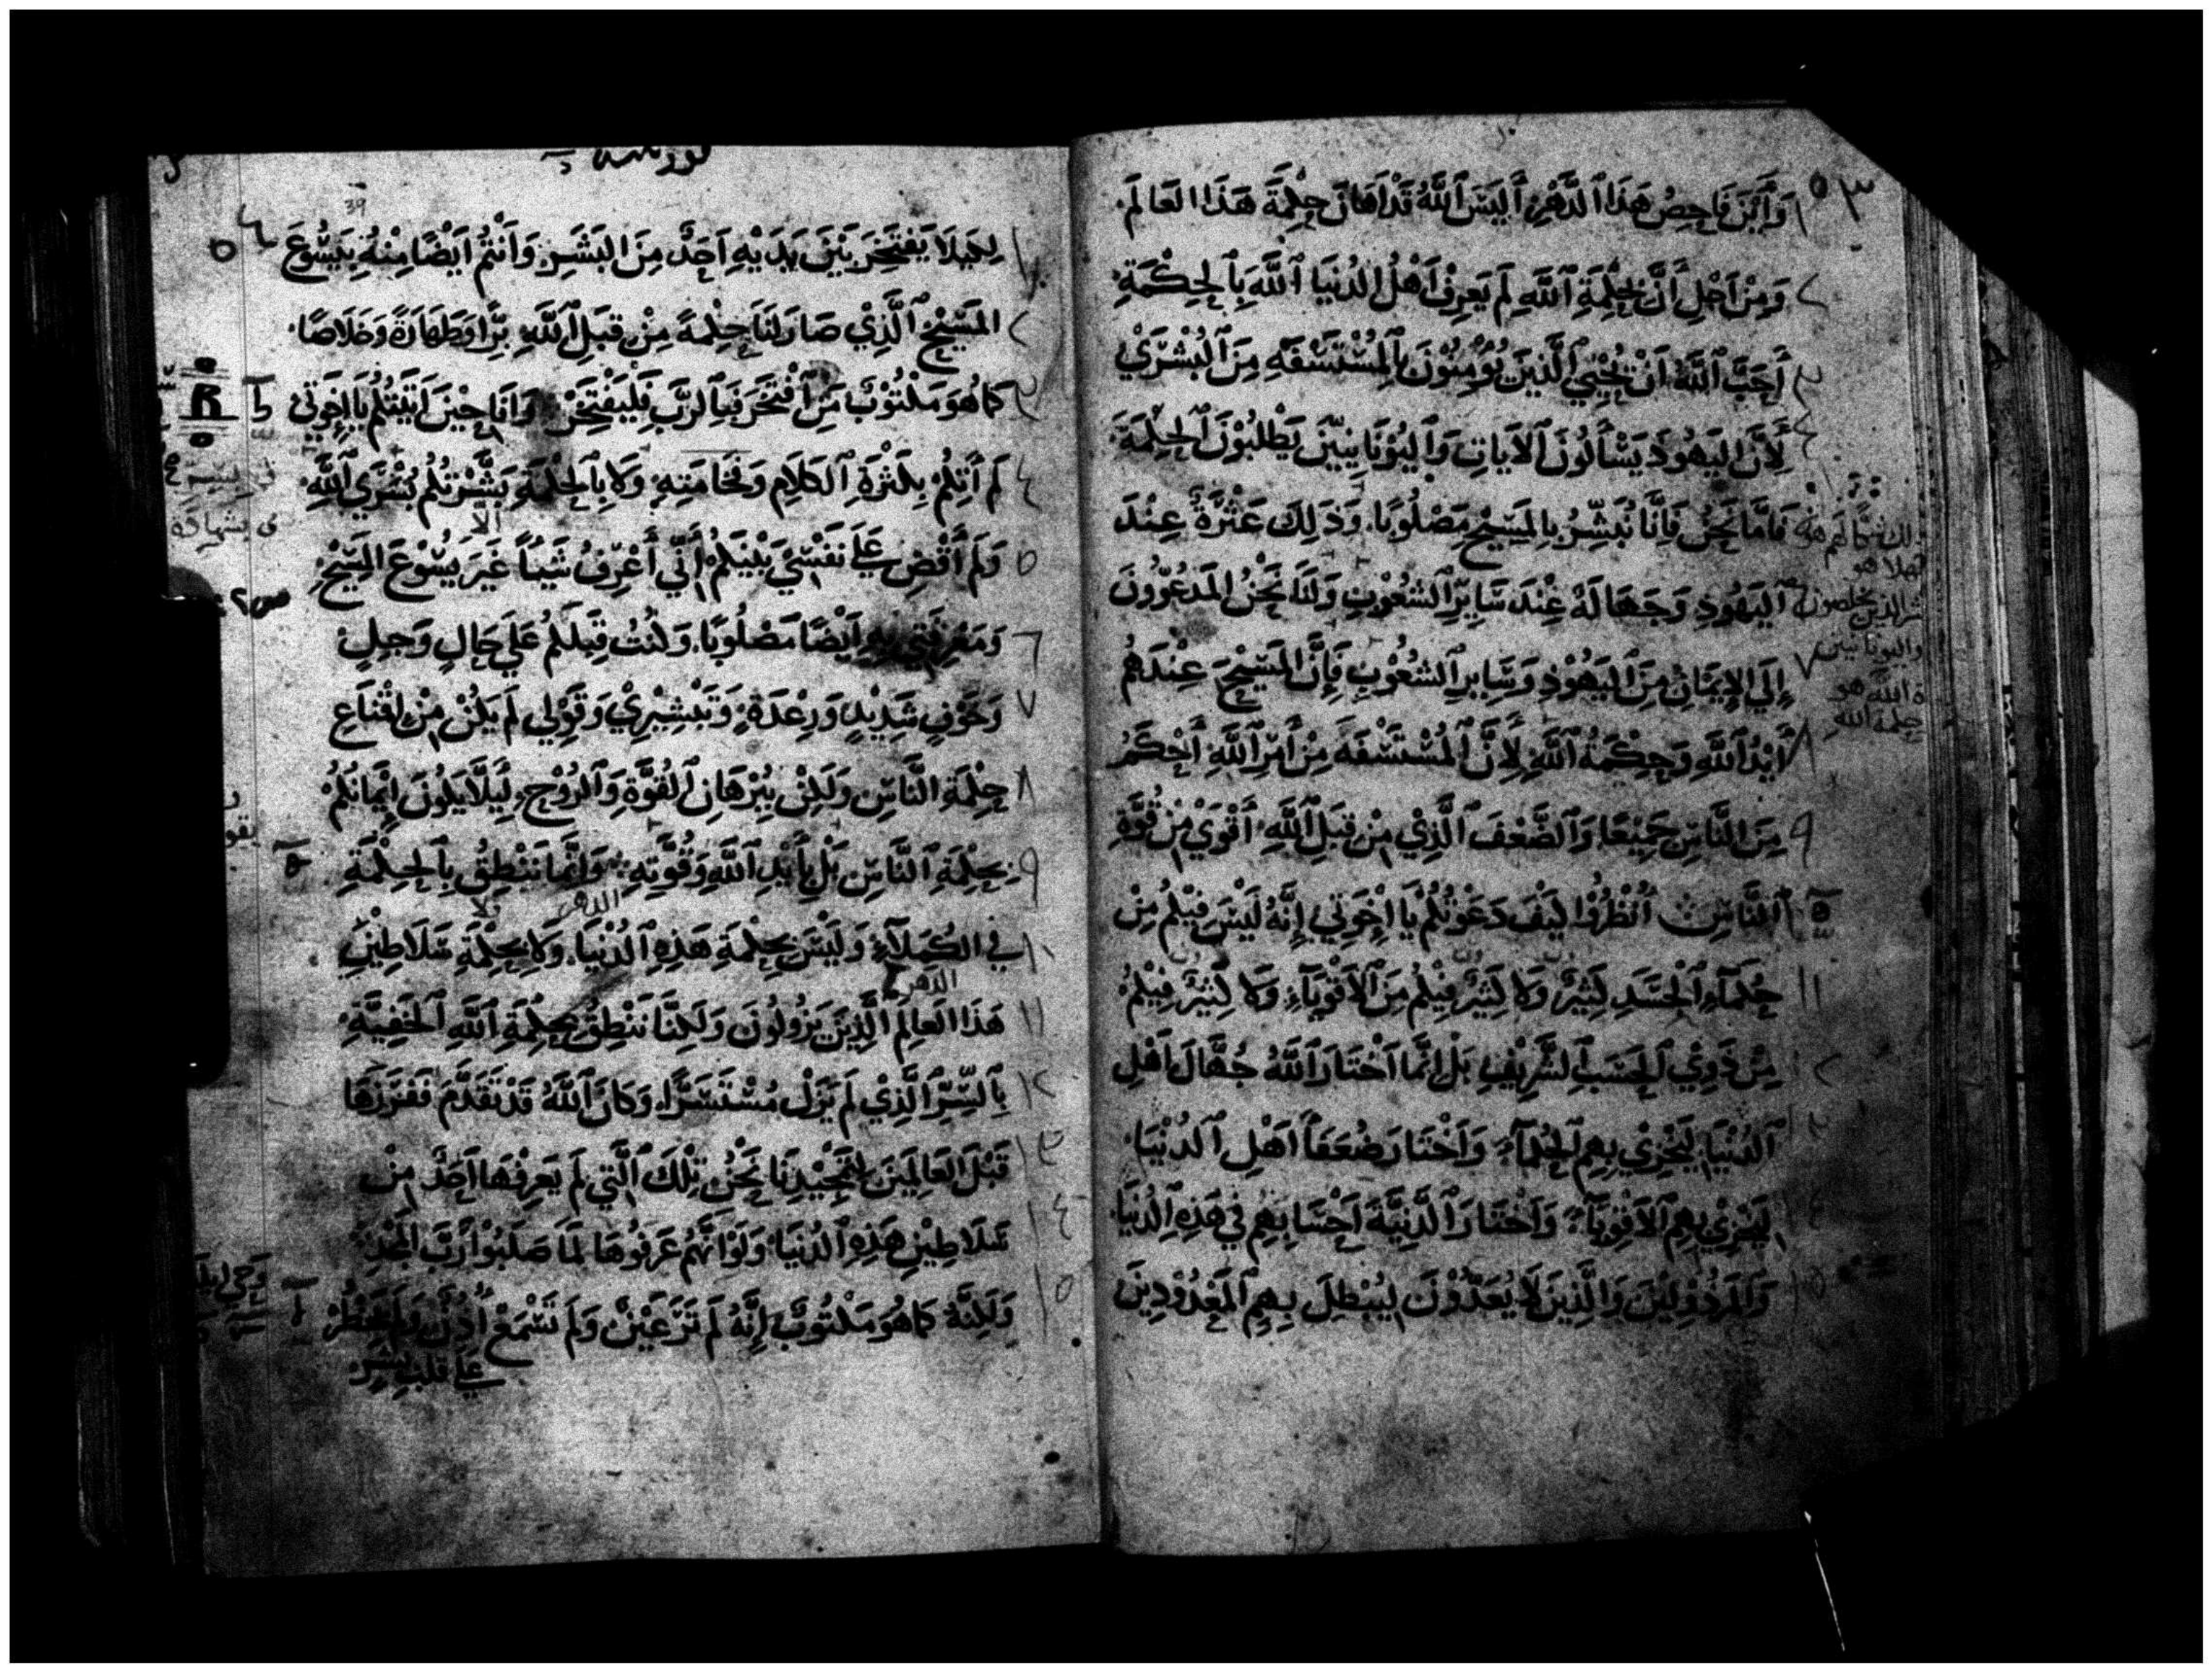 وَأَيْنَ فَاحِصُ هَذَا ٱلدَّهْرِ أَلَيْسَ ٱللَّهُ قَدْ اَهَانَ حِكْمَةَ هَذَا العَالَمِ.
وَمِنْ اَجْلِ أَنَّ بِحِكْمَةِ ٱللَّهِ لَمْ يَعرِفْ اَهْلُ الدُنْيَا ٱللَّهَ بِٱلْحِكْمَةِ
أَحَبَّ ٱللَّهُ اَنْ يُحْيِيَ ٱلَّذِينَ يُؤْمِنُونَ بِٱلْمُسْتَسْفَهِ مِنَ ٱلْبُشْرَيْ
لِأَنَّ اليَهُودَ يَسْأَلُونَ ٱلآيَاتِ وَٱليُوْنَانِيِّيْنَ يَطْلُبُوْنَ ٱلْحِكْمَةَ.
فَامَّا نَحْنُ فَاِنَّا نُبَشِّرُ بِالمَسِيْحِ مَصْلُوبًا. وَذَلِكَ عَثْرَةٌ عِنْدَ
ٱليَهُودِ وَجَهَالَةٌ عِنْدَ سَايِرِ ٱلشُعُوْبِ وَلَنَا نَحْنُ المَدْعُوُّونَ
إِلَي الاِيمَانِ مِنَ ٱليَهُوْدِ وَسَايِرِ ٱلشُعُوْبِ فَإِنَّ المَسِيْحَ عِنْدَهُم
أَيْدُ ٱللَّهِ وَحِكْمَةُ ٱللَّهِ لِأَنَّ ٱلْمُسْتَسْفَهَ مِنْ أَمْرِ ٱللَّهِ أَحْكَمُ
مِنَ النَّاسِ جَمِيْعًا وَٱلضَّعْفَ ٱلَّذِيْ مِنْ قِبَلِ ٱللَّهِ أَقْوَيْ مِنْ قُوَّةِ
ٱلنَّاسِ ٱنْظُرُوْا كَيْفَ دَعْوَتُكُمْ يَا إِخْوَتِي إِنَّهُ لَيْسَ فِيْكُمْ مِنْ
حُكَمَآءِ ٱلْجَسَدِ كَثِيْرٌ وَلَا كَثِيْرٌ فِيْكُمْ مِنَ ٱلاَقْوِيَآءِ وَلَا كَثِيْرٌ فِيْكُمْ
مِنْ ذَوِيْ ٱلْحَسَبِ ٱلشَّرِيْفِ بَلْ اِنَّمَا اَخْتَارَ ٱللَّهُ جُهَّالَ اَهْلِ
ٱلدُنْيَا لِيُخْزِيْ بِهِمِ ٱلْحُكَمَآءَ وَاَخْتَارَ ضُعَفَآ اَهْلِ ٱلدُنْيَا.
لِيُخْزِيْ بِهِمِ ٱلاَقْوِيَآءَ وَاَخْتَارَ ٱلدَّنِيَّةَ اَحْسَابِهِمْ فِي هَذِهِ ٱلدُنْيَا
وَالمَرْذُوْلِيْنَ وَٱلَّذِيْنَ لَا يُعَدُّوْنَ لِيُبْطِلَ بِهِمِ ٱلْمَعْدُوْدِيْنَ
لِكَيْلَا يَفْتَخِرَ بَيْنَ يَدَيْهِ اَحَدٌ مِنَ البَشَرِ وَاَنْتُمُ اَيْضًا مِنْهُ بِيَسُّوعَ
المَسِيْحِ ٱلَّذِيْ صَارَ لَنَا حِكْمَةً مِنْ قِبَلِ ٱللَّهِ بِرًّا وَطَهَارَةً وَخَلَاصًا.
كَمَا هُوَ مَكْتُوْبٌ مَنِ ٱفْتَخَرَ فَبِٱلرَّبِّ فَلْيَفْتَخِرْ وَاَنَا حِيْنَ اَتَيْتُكُمْ يَا إِخْوَتِي
لَمْ أَتِكُمْ بِكَثْرَةِ ٱلكَلَامِ وَفَخَامَتِهِ وَلَا بِٱلْحِكْمَةِ بَشَّرْتُكُمْ بُشْرَيِ ٱللَّهِ
وَلَمْ أَقْضِ عَلَي نَفْسِيْ بَيْنَكُمْ أَنِّي أَعْرِفُ شَيْئًا غَيْرَ يَسُوْعَ المَسِيْحِ
وَمَعْرِفَتِي بِهِ اَيْضًا مَصْلُوبًا. وَكُنْتُ قِبَلَكُمْ عَلَي حَالِ وَجِلٍ
وَخَوْفٍ شَدِيْدٍ وَرِعْدَةٍ وَتَبْشِيْرِيْ وَقَوْلِي لَمْ يَكُنْ مِنْ اِقْنَاعِ
حِكْمَةِ النَّاسِ وَلَكِنْ بِبُرْهَانِ ٱلقُوَّةِ وَٱلرُوْحِ. لِيَلَّا يَكُونَ اِيْمَانُكُمْ
بِحِكْمَةِ ٱلنَّاسِ بَلْ بِأَيْدِ ٱللَّهِ وَقُوَّتِهِ وَاِنَّمَا نَنْطِقُ بِٱلْحِكْمَةِ
فِي الكُمَلَآءِ وَلَيْسَ بِحِكْمَةِ هَذِهِ ٱلدُنْيَا. وَلَا بِحِكْمَةِ سَلَاطِيْنِ
هَذَا العَالَمِ الَّذِيْنَ يَزُولُونَ وَلَكِنَّا نَنْطِقُ بِحِكْمَةِ ٱللَّهِ ٱلْخَفِيَّةِ
بِٱلسِّرِّ ٱلَّذِيْ لَمْ يَزَلْ مُسْتَسَرًّا وَكَانَ ٱللَّهُ قَدْ تَقَدَّمَ فَفَرَزَهَا
قَبْلَ العَالَمِيْنَ لِتَمْجِيْدِنَا نَحْنُ تِلْكَ ٱلَّتِي لَمْ يَعرِفْهَا اَحَدٌ مِنْ
سَلَاطِيْنِ هَذِهِ ٱلدُنْيَا وَلَوْ اَنَّهُمْ عَرَفُوهَا لَمَا صَلَبُوْا رَبَّ ٱلْمَجْدِ
وَلَكِنَّهُ كَمَا هُوَ مَكْتُوبٌ إِنَّهُ لَمْ تَرَ عَيْنٌ وَلَمْ تَسْمَعْ أُذُنٌ وَلَمْ يَخْطُرْ
عَلَي قَلْبِ بَشَرٍ